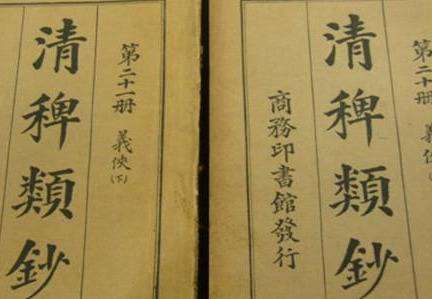 第二十册 義俠
清稗類鈔
商務印書館發行
第二十一册 義俠(下)
清稗類鈔